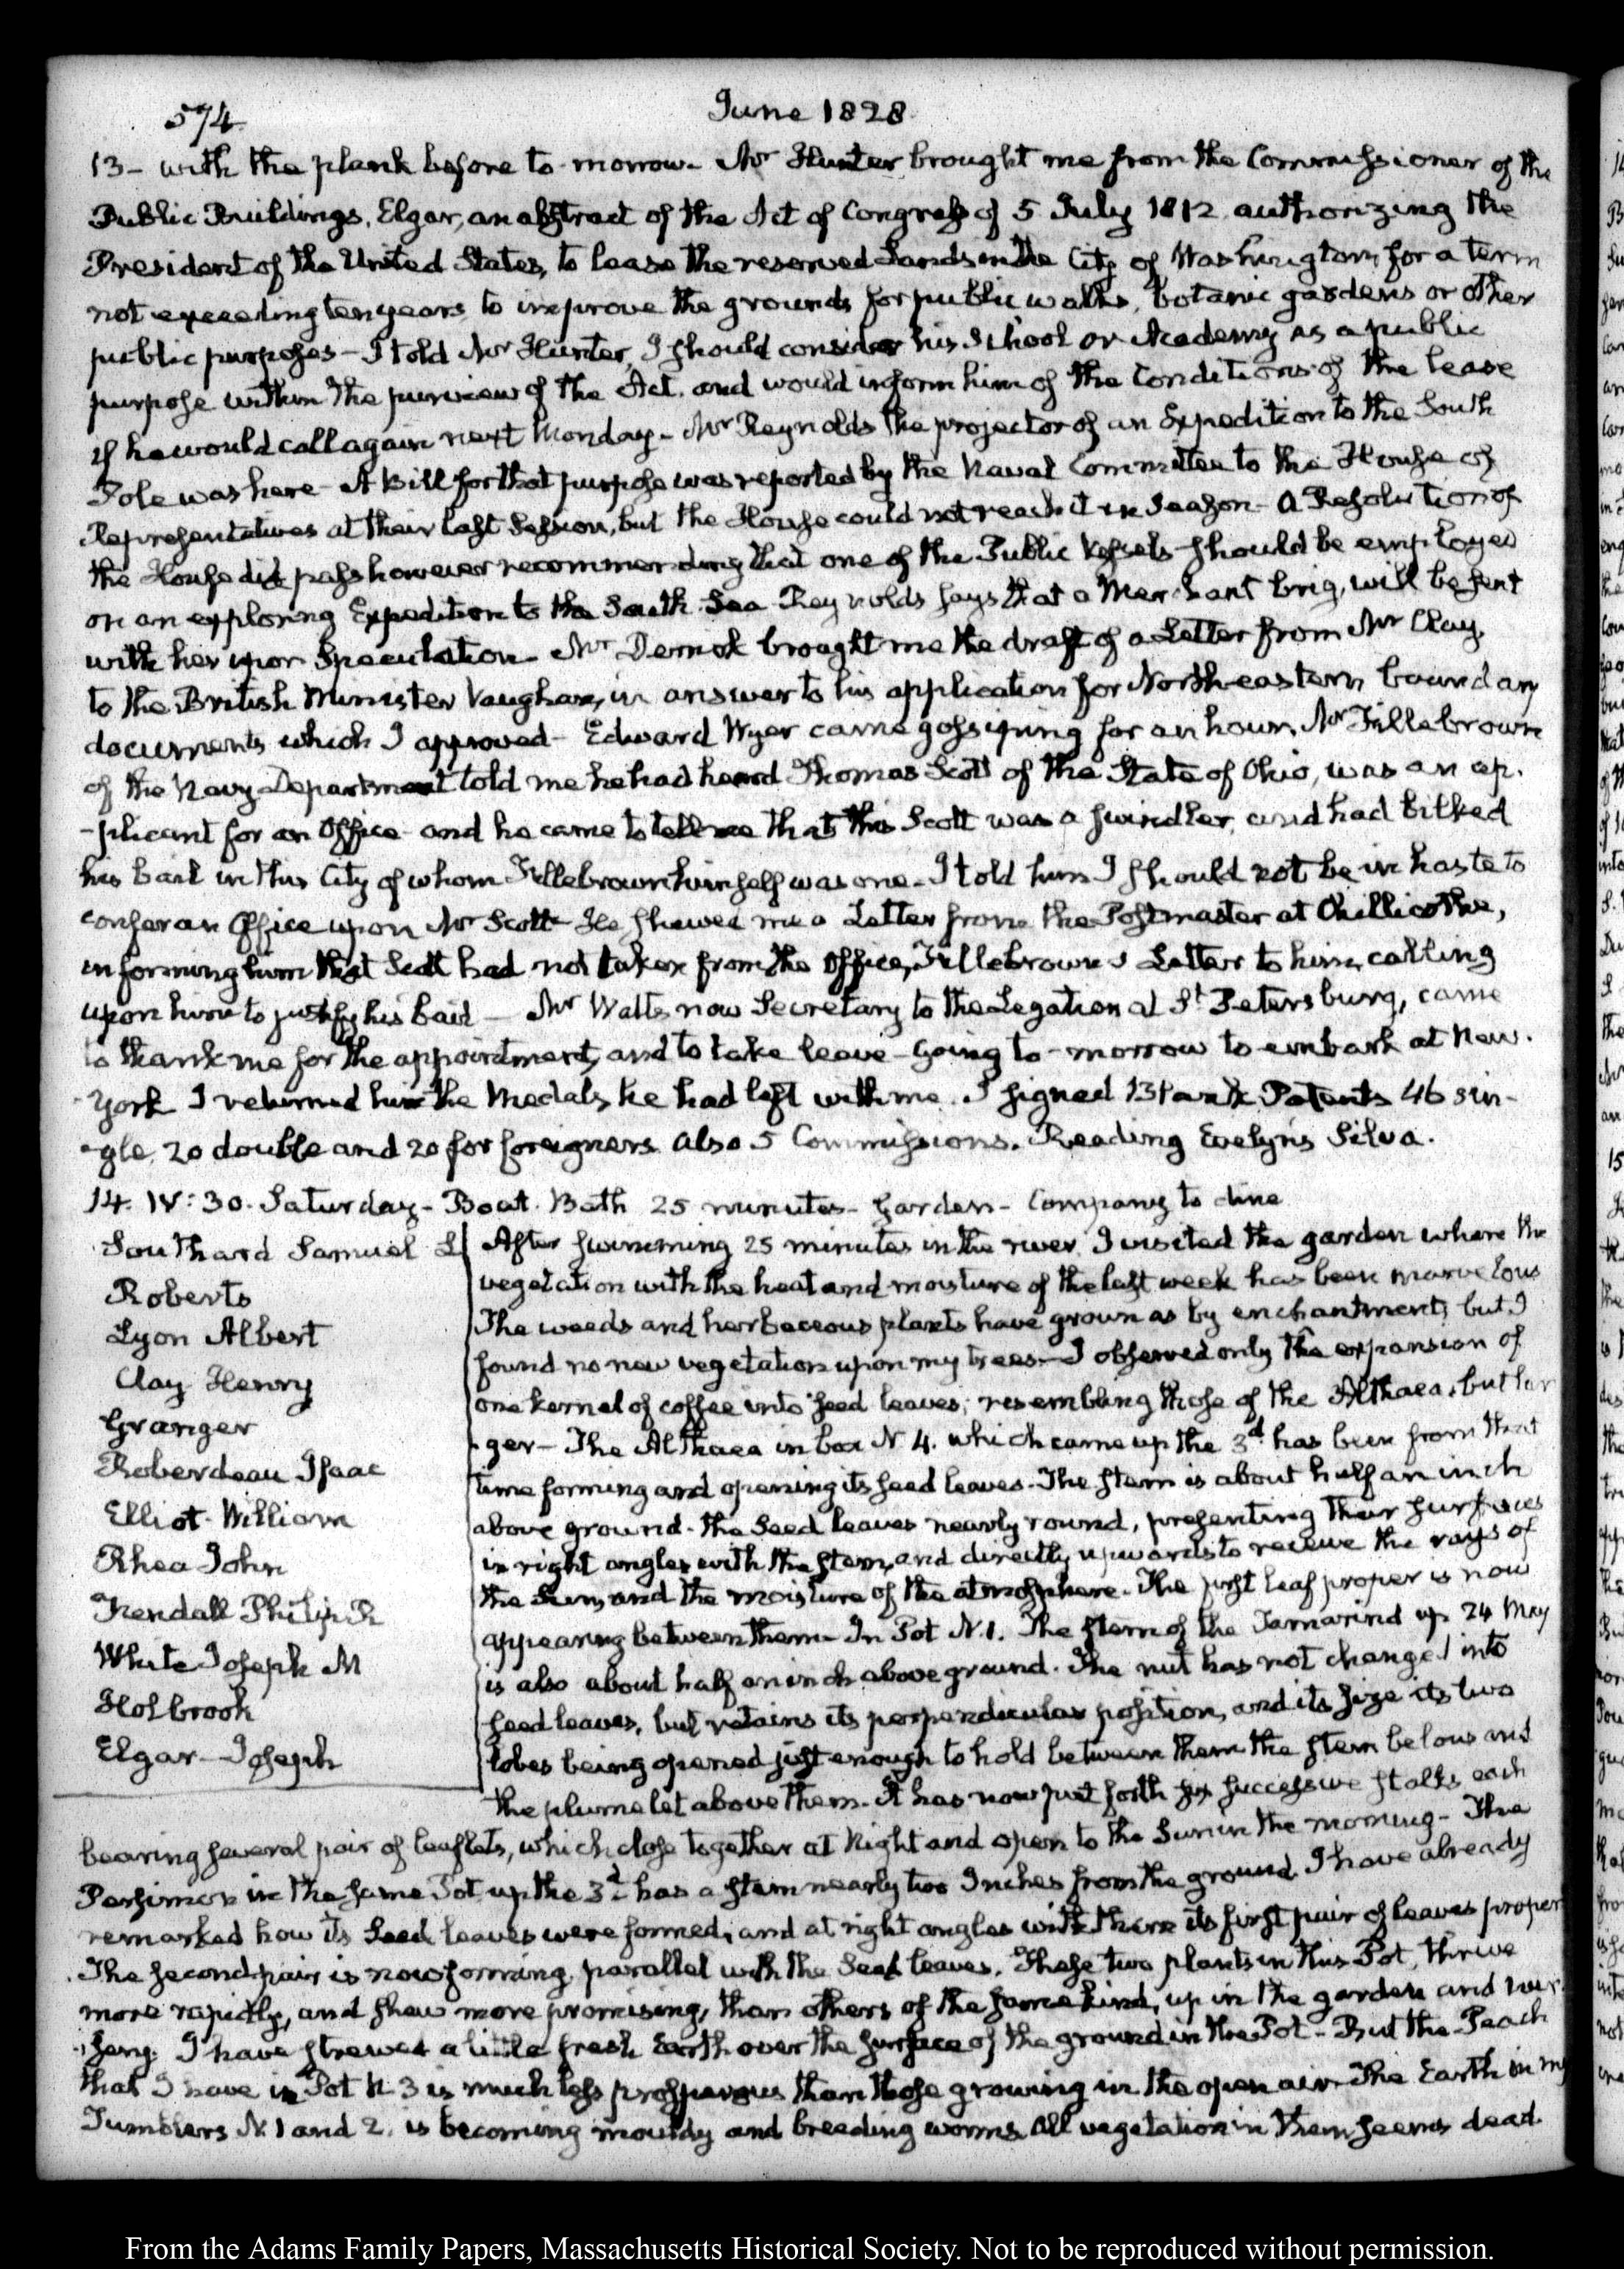 574
June 1828
13 - with the plank before to-morrow - Mr Hunter brought me from the Commissioner of the
Public Buildings, Elgar, an abstract of the Act of Congress of 5 July 1812 authorizing the
President of the United States, to lease the reserved Lands in the City of Washington, for a term
not exceeding ten years to improve the grounds for public walks, botanic gardens or other
public purposes - I told Mr Hunter, I should consider his School or Academy as a public
purpose within the purview of the Act. and would inform him of the Conditions of the lease
if he would call again next Monday - Mr Reynolds the projector of an Expedition to the South
Pole was here - A Bill for that purpose was reported by the Naval Committee to the House of
Representatives at their last Session, but the House could not reach it in Season - A Resolution of
the House did pass however recommending that one of the Public Vessels should be employed
on an exploring Expedition to the South Sea. Reynolds says that a Merchant brig, will be sent
with her upon Speculation - Mr Derrick brought me the draft of a Letter from Mr Clay,
to the British Minister Vaughan, in answer to his application for North-eastern boundary
documents which I approved - Edward Wyer came gossiping for an hour, Mr Fillebrown
of the Navy Department told me he had heard Thomas Scott of the State of Ohio, was an ap-
-plicant for an Office and he came to tell me that this Scott was a swindler, and had bilked
his bail in this City of whom Fillebrown himself was one - I told him I should not be in haste to
confer an Office upon Mr Scott - He shewed me a Letter from the Postmaster at Chillicothe,
informing him that Scott had not taken from the Office, Fillebrown's Letter to him, calling
upon him to justify his bail - Mr Watts now Secretary to the Legation at St Petersburg, came
to thank me for the appointment, and to take leave - Going to-morrow to embark at New-
-York I returned him the Medals he had left with me. I signed Patents 46 sin-
-gle, 20 double and 20 for foreigners also 5 Commissions. Reading Evelyn's Silva.
14. IV: 30. Saturday - Boat. Bath 25 minutes - Garden - Company to dine
Southard Samuel L
Roberts
Lyon Albert
Clay Henry
Granger
Roberdeau Isaac
Elliot William
Rhea John
Kendall Philip R
White Joseph M
Holbrook
Elgar - Joseph
After swimming 25 minutes in the river, I visited the garden where the
vegetation with the heat and moisture of the last week has been marvelous
The weeds and herbaceous plants have grown as by enchantment, but I
found no new vegetation upon my trees - I observed only the expansion of
one kernel of coffee into seed leaves, resembling those of the Althaea, but lar
-ger - The Althaea in box N. 4. which came up the 3d has been from that
time forming and opening its seed leaves - The stem is about half an inch
above ground - the Seed leaves nearly round, presenting their surfaces
in right angles with the stem, and directly upwards to receive the rays of
the Sun, and the moisture of the atmosphere - The first leaf proper is now
appearing between them - In Pot N. 1. The stem of the Tamarind up 24 May
is also about half an inch above ground. The nut has not changed into
seed leaves, but retains its perpendicular position, and its size its two
lobes being opened just enough to hold between them the stem below and
the plumelet above them - It has now put forth six successive stalks each
bearing several pair of leaflets, which close together at Night and open to the Sun in the morning - The
Persimon in the same Pot, up the 3d has a stem nearly two Inches from the ground I have already
remarked how its Seed leaves were formed, and at right angles with them its first pair of leaves proper
The second pair is now forming, parallel with the Seed leaves. These two plants in this Pot, thrive
more rapidly, and shew more promising, than others of the same kind, up in the garden and nur
-sery. I have strewed a little fresh Earth over the surface of the ground in the Pot - But the Peach
that I have in Pot N. 3 is much less prosperous than those growing in the open air - The Earth in my
Tumblers N. 1 and 2. is becoming mouldy and breeding worms. All vegetation in them seems dead
From the Adams Family Papers, Massachusetts Historical Society. Not to be reproduced without permission.